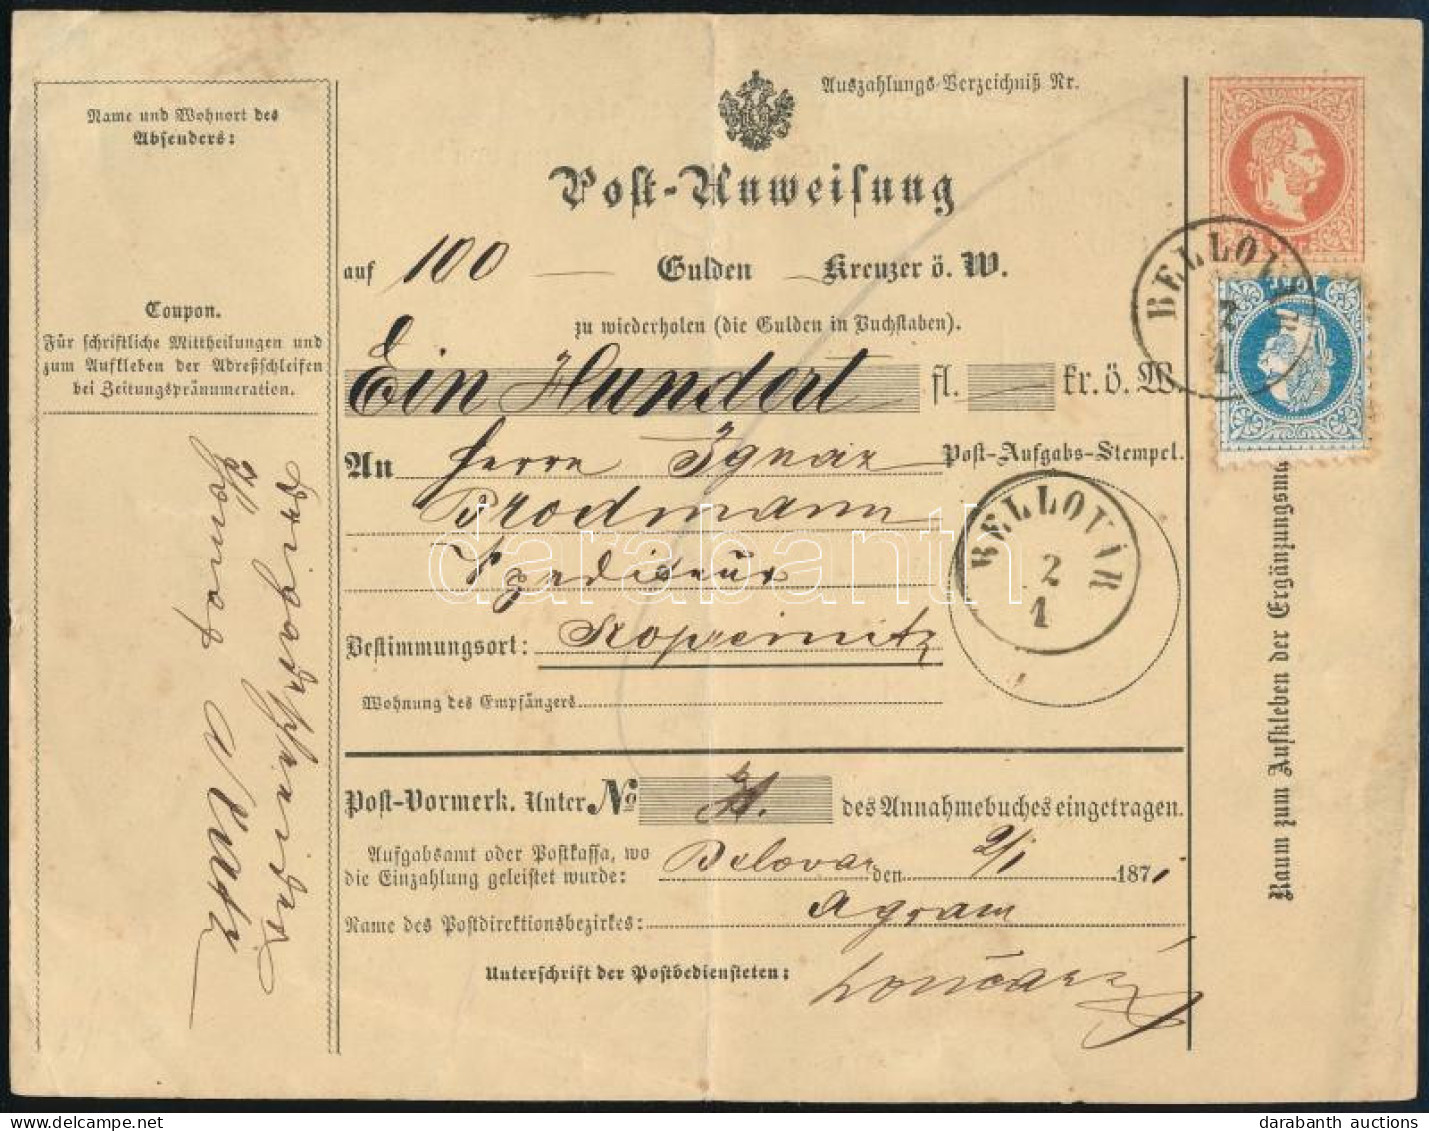 Name und Wohnort des
Absenders:
Coupon.
Für schriftliche Mittheilungen und
zum Aufkleben der Adreßschleifen
bei Zeitungspränumeration.
Auszahlungs-Verzeichniß Nr.
Post-Anweisung
auf 100 — Gulden — Kreuzer ö. W.
zu wiederholen (die Gulden in Buchstaben).
Ein Hundert fl. — kr. ö. W.
An Herrn Ignaz
Brodmann
Spediteur
Post-Aufgabs-Stempel.
BELLOVÁR
2
1
Bestimmungsort: Kopreinitz
Wohnung des Empfängers
Post-Vormerk. Unter No des Annahmebuches eingetragen.
Aufgabsamt oder Postkassa, wo
die Einzahlung geleistet wurde: Belovar den 2/1 1871
Name des Postdirektionsbezirkes: Agram
Unterschrift der Postbediensteten:
BELLOV
2
1
Raum zum Aufkleben der Ergänzungsm
darabanth
darabanth auctions